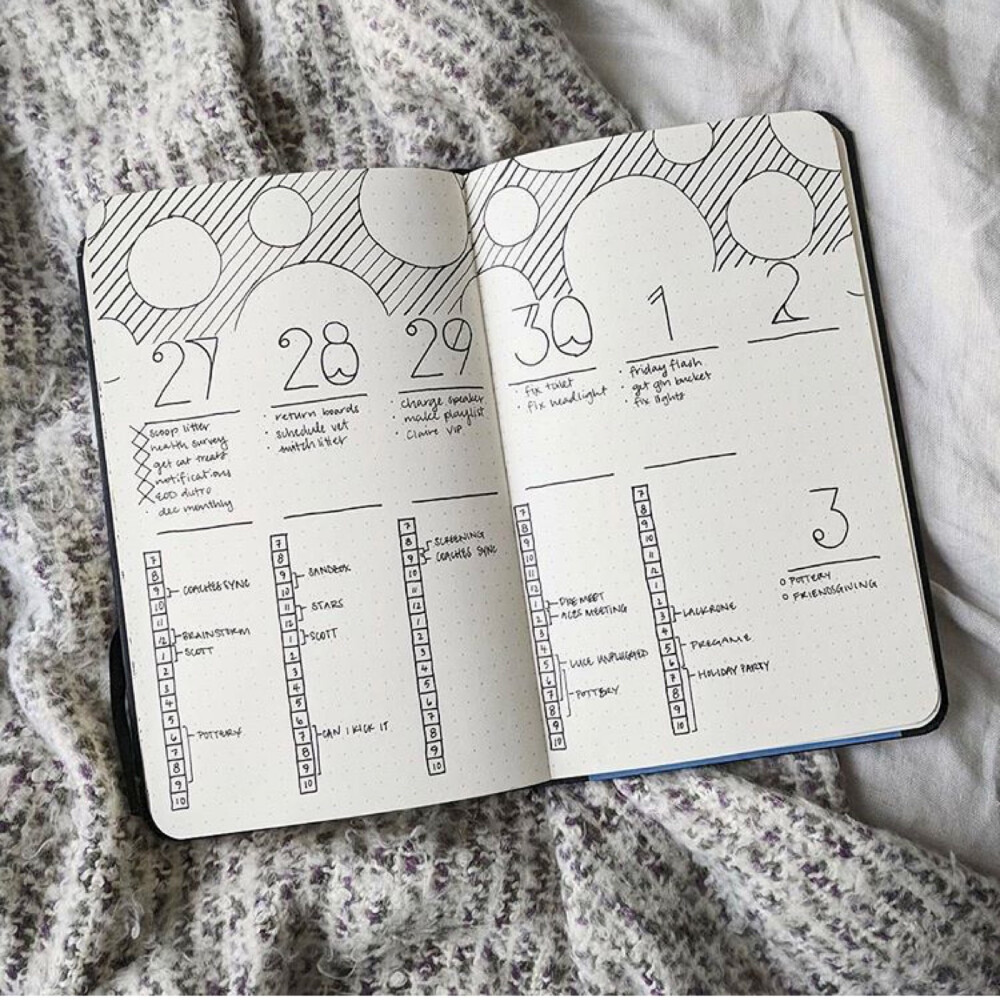 27
scoop litter
health survey
get cat treats
notifications
EOD
dec monthly
7
8
9 COACHES SYNC
10
11
12 BRAINSTORM
1 SCOTT
2
3
4
5
6 POTTERY
7
8
9
10
28
return boards
schedule vet
switch litter
7
8
9 SANDBOX
10
11 STARS
12
1 SCOTT
2
3
4
5
6
7 CAN I KICK IT
8
9
10
29
charge speaker
make playlist
Claire VIP
7
8 SCREENING
9 COACHES SYNC
10
11
12
1
2
3
4
5
6
7
8
9
10
30
fix toilet
fix headlight
7
8
9
10
11
12
1 PREMEET
2 ACES MEETING
3
4
5 LUCE UNPLUGGED
6
7 POTTERY
8
9
10
1
friday flash
get gin bucket
fix lights
7
8
9
10
11
12
1
2
3 LACKRONE
4
5 PREGAME
6
7 HOLIDAY PARTY
8
9
10
2
3
POTTERY
FRIENDSGIVING